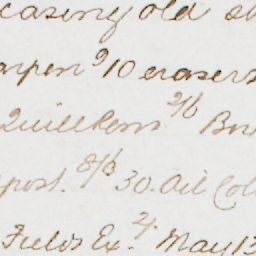 easing old
arpen 9/10 erasers
Quill Pens 2/6
post. 8/6 30. Oil Col
Fields Ex. 2/. May 13